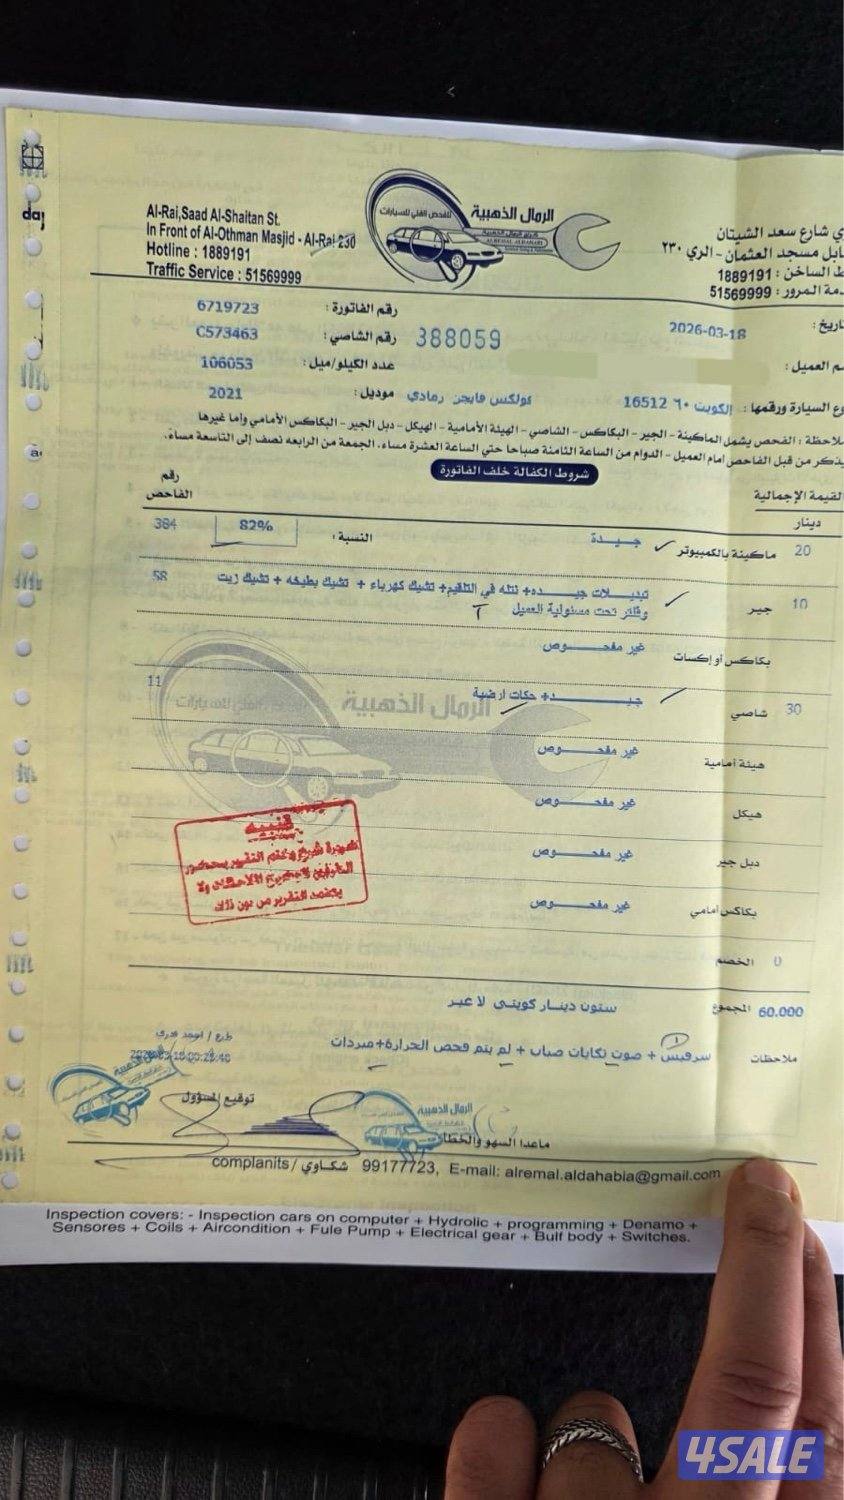 Al-Rai,Saad Al-Shaitan St.
In Front of Al-Othman Masjid - Al-Rai 230
Hotline : 1889191
Traffic Service : 51569999
الرمال الذهبية
للفحص الفني للسيارات
ي شارع سعد الشيتان
ابل مسجد العثمان - الري ٢٣٠
ط الساخن : 1889191
دمة المرور : 51569999
day
رقم الفاتورة : 6719723
اريخ : 2026-03-18
رقم الشاصي : C573463
388059
م العميل :
عدد الكيلو/ميل : 106053
وع السيارة ورقمها : الكويت ٦٠ 16512 فولكس فايجن رمادي
موديل : 2021
لاحظة : الفحص يشمل الماكينة - الجير - البكاكس - الشاصي - الهيئة الأمامية - الهيكل - دبل الجير - البكاكس الأمامي وإما غيرها
يذكر من قبل الفاحص امام العميل - الدوام من الساعة الثامنة صباحا حتي الساعة العشرة مساء، الجمعة من الرابعه نصف إلى التاسعة مساء.
شروط الكفالة خلف الفاتورة
القيمة الإجمالية
رقم الفاحص
دينار
20 ماكينة بالكمبيوتر جيدة النسبة : 82% 384
10 جير تبديلات جيده+ نتله في التلقيم+ تشيك كهرباء + تشيك بطيخه + تشيك زيت 58
وفلتر تحت مسئولية العميل
بكاكس أو إكسات غير مفحوص
30 شاصي جيد+ حكات ارضية 11
الرمال الذهبية
للفحص الفني للسيارات
هيئة أمامية غير مفحوص
هيكل غير مفحوص
دبل جير غير مفحوص
بكاكس أمامي غير مفحوص
تنبيه
شرح وختم التقرير بحضور
يعتمد التقرير من دون ذلك
الخصم 0
المجموع 60.000 ستون دينار كويتي لا غير
ملاحظات سرفيس + صوت تكايات صباب + لم يتم فحص الحرارة+مبردات
توقيع المسؤول
الرمال الذهبية
ماعدا السهو والخطأ
complanits / شكاوي 99177723, E-mail: alremal.aldahabia@gmail.com
Inspection covers: - Inspection cars on computer + Hydrolic + programming + Denamo +
Sensores + Coils + Aircondition + Fule Pump + Electrical gear + Bulf body + Switches.
4SALE